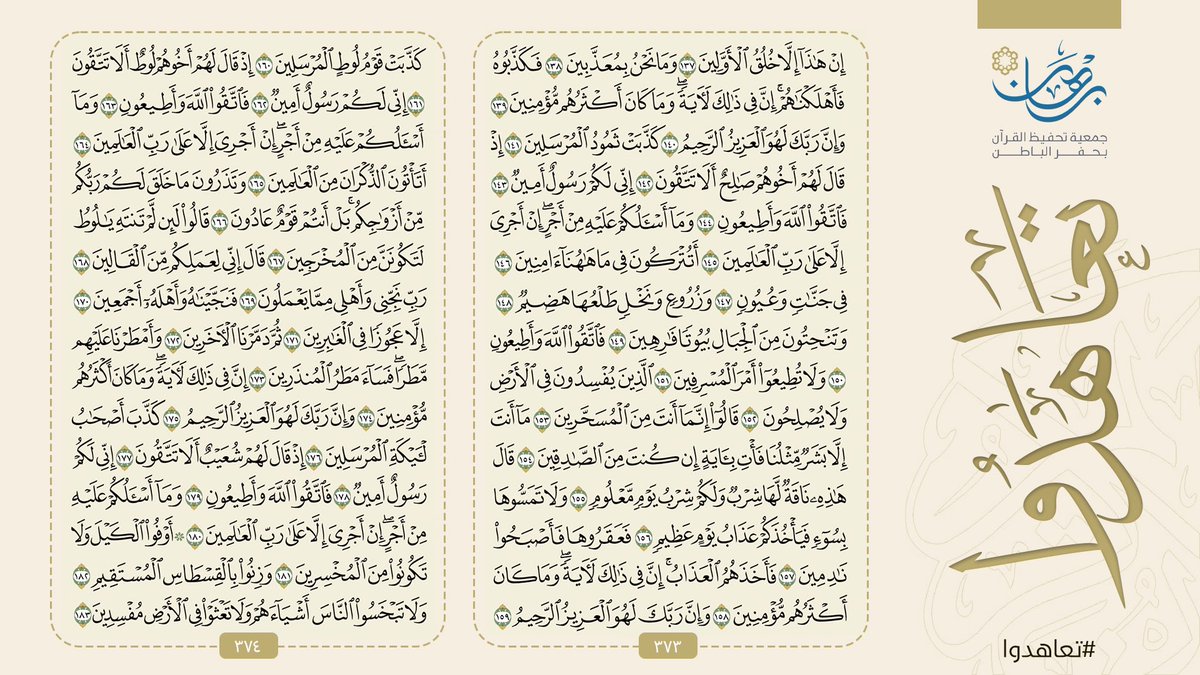 برهان
جمعية تحفيظ القرآن
بحفر الباطن
تعاهدوا
#تعاهدوا
إِنْ هَٰذَآ إِلَّا خُلُقُ ٱلْأَوَّلِينَ ١٣٧ وَمَا نَحْنُ بِمُعَذَّبِينَ ١٣٨ فَكَذَّبُوهُ
فَأَهْلَكْنَٰهُمْ ۗ إِنَّ فِى ذَٰلِكَ لَءَايَةً ۖ وَمَا كَانَ أَكْثَرُهُم مُّؤْمِنِينَ ١٣٩
وَإِنَّ رَبَّكَ لَهُوَ ٱلْعَزِيزُ ٱلرَّحِيمُ ١٤٠ كَذَّبَتْ ثَمُودُ ٱلْمُرْسَلِينَ ١٤١ إِذْ
قَالَ لَهُمْ أَخُوهُمْ صَٰلِحٌ أَلَا تَتَّقُونَ ١٤٢ إِنِّى لَكُمْ رَسُولٌ أَمِينٌ ١٤٣
فَٱتَّقُوا۟ ٱللَّهَ وَأَطِيعُونِ ١٤٤ وَمَآ أَسْـَٔلُكُمْ عَلَيْهِ مِنْ أَجْرٍ ۖ إِنْ أَجْرِىَ
إِلَّا عَلَىٰ رَبِّ ٱلْعَٰلَمِينَ ١٤٥ أَتُتْرَكُونَ فِى مَا هَٰهُنَآ ءَامِنِينَ ١٤٦
فِى جَنَّٰتٍ وَعُيُونٍ ١٤٧ وَزُرُوعٍ وَنَخْلٍ طَلْعُهَا هَضِيمٌ ١٤٨
وَتَنْحِتُونَ مِنَ ٱلْجِبَالِ بُيُوتًا فَٰرِهِينَ ١٤٩ فَٱتَّقُوا۟ ٱللَّهَ وَأَطِيعُونِ
١٥٠ وَلَا تُطِيعُوٓا۟ أَمْرَ ٱلْمُسْرِفِينَ ١٥١ ٱلَّذِينَ يُفْسِدُونَ فِى ٱلْأَرْضِ
وَلَا يُصْلِحُونَ ١٥٢ قَالُوٓا۟ إِنَّمَآ أَنتَ مِنَ ٱلْمُسَحَّرِينَ ١٥٣ مَآ أَنتَ
إِلَّا بَشَرٌ مِّثْلُنَا فَأْتِ بِـَٔايَةٍ إِن كُنتَ مِنَ ٱلصَّٰدِقِينَ ١٥٤ قَالَ
هَٰذِهِۦ نَاقَةٌ لَّهَا شِرْبٌ وَلَكُمْ شِرْبُ يَوْمٍ مَّعْلُومٍ ١٥٥ وَلَا تَمَسُّوهَا
بِسُوٓءٍ فَيَأْخُذَكُمْ عَذَابُ يَوْمٍ عَظِيمٍ ١٥٦ فَعَقَرُوهَا فَأَصْبَحُوا۟
نَٰدِمِينَ ١٥٧ فَأَخَذَهُمُ ٱلْعَذَابُ ۗ إِنَّ فِى ذَٰلِكَ لَءَايَةً ۖ وَمَا كَانَ
أَكْثَرُهُم مُّؤْمِنِينَ ١٥٨ وَإِنَّ رَبَّكَ لَهُوَ ٱلْعَزِيزُ ٱلرَّحِيمُ ١٥٩
٣٧٣
كَذَّبَتْ قَوْمُ لُوطٍ ٱلْمُرْسَلِينَ ١٦٠ إِذْ قَالَ لَهُمْ أَخُوهُمْ لُوطٌ أَلَا تَتَّقُونَ
١٦١ إِنِّى لَكُمْ رَسُولٌ أَمِينٌ ١٦٢ فَٱتَّقُوا۟ ٱللَّهَ وَأَطِيعُونِ ١٦٣ وَمَآ
أَسْـَٔلُكُمْ عَلَيْهِ مِنْ أَجْرٍ ۖ إِنْ أَجْرِىَ إِلَّا عَلَىٰ رَبِّ ٱلْعَٰلَمِينَ ١٦٤
أَتَأْتُونَ ٱلذُّكْرَانَ مِنَ ٱلْعَٰلَمِينَ ١٦٥ وَتَذَرُونَ مَا خَلَقَ لَكُمْ رَبُّكُم
مِّنْ أَزْوَٰجِكُم ۚ بَلْ أَنتُمْ قَوْمٌ عَادُونَ ١٦٦ قَالُوا۟ لَئِن لَّمْ تَنتَهِ يَٰلُوطُ
لَتَكُونَنَّ مِنَ ٱلْمُخْرَجِينَ ١٦٧ قَالَ إِنِّى لِعَمَلِكُم مِّنَ ٱلْقَالِينَ ١٦٨
رَبِّ نَجِّنِى وَأَهْلِى مِمَّا يَعْمَلُونَ ١٦٩ فَنَجَّيْنَٰهُ وَأَهْلَهُۥٓ أَجْمَعِينَ ١٧٠
إِلَّا عَجُوزًا فِى ٱلْغَٰبِرِينَ ١٧١ ثُمَّ دَمَّرْنَا ٱلْءَاخَرِينَ ١٧٢ وَأَمْطَرْنَا عَلَيْهِم
مَّطَرًا ۖ فَسَآءَ مَطَرُ ٱلْمُنذَرِينَ ١٧٣ إِنَّ فِى ذَٰلِكَ لَءَايَةً ۖ وَمَا كَانَ أَكْثَرُهُم
مُّؤْمِنِينَ ١٧٤ وَإِنَّ رَبَّكَ لَهُوَ ٱلْعَزِيزُ ٱلرَّحِيمُ ١٧٥ كَذَّبَ أَصْحَٰبُ
لْـَٔيْكَةِ ٱلْمُرْسَلِينَ ١٧٦ إِذْ قَالَ لَهُمْ شُعَيْبٌ أَلَا تَتَّقُونَ ١٧٧ إِنِّى لَكُمْ
رَسُولٌ أَمِينٌ ١٧٨ فَٱتَّقُوا۟ ٱللَّهَ وَأَطِيعُونِ ١٧٩ وَمَآ أَسْـَٔلُكُمْ عَلَيْهِ
مِنْ أَجْرٍ ۖ إِنْ أَجْرِىَ إِلَّا عَلَىٰ رَبِّ ٱلْعَٰلَمِينَ ١٨٠ ۞ أَوْفُوا۟ ٱلْكَيْلَ وَلَا
تَكُونُوا۟ مِنَ ٱلْمُخْسِرِينَ ١٨١ وَزِنُوا۟ بِٱلْقِسْطَاسِ ٱلْمُسْتَقِيمِ ١٨٢
وَلَا تَبْخَسُوا۟ ٱلنَّاسَ أَشْيَآءَهُمْ وَلَا تَعْثَوْا۟ فِى ٱلْأَرْضِ مُفْسِدِينَ ١٨٣
٣٧٤